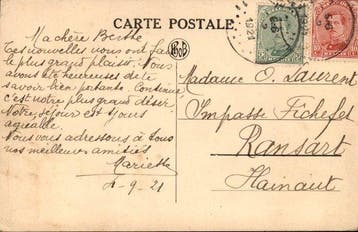 CARTE POSTALE
Ma chère Berthe
Tes nouvelles nous ont fait
le plus grand plaisir. Nous
avons été heureuses de te
savoir bien portante. Continue
c'est notre plus grand désir.
Notre séjour est tjours
agréable.
Nous vous adressons à tous
nos meilleures amitiés
Mariette
4-9-21
Madame O. Laurent
Impasse Fichefet
Ransart
Hainaut
1921